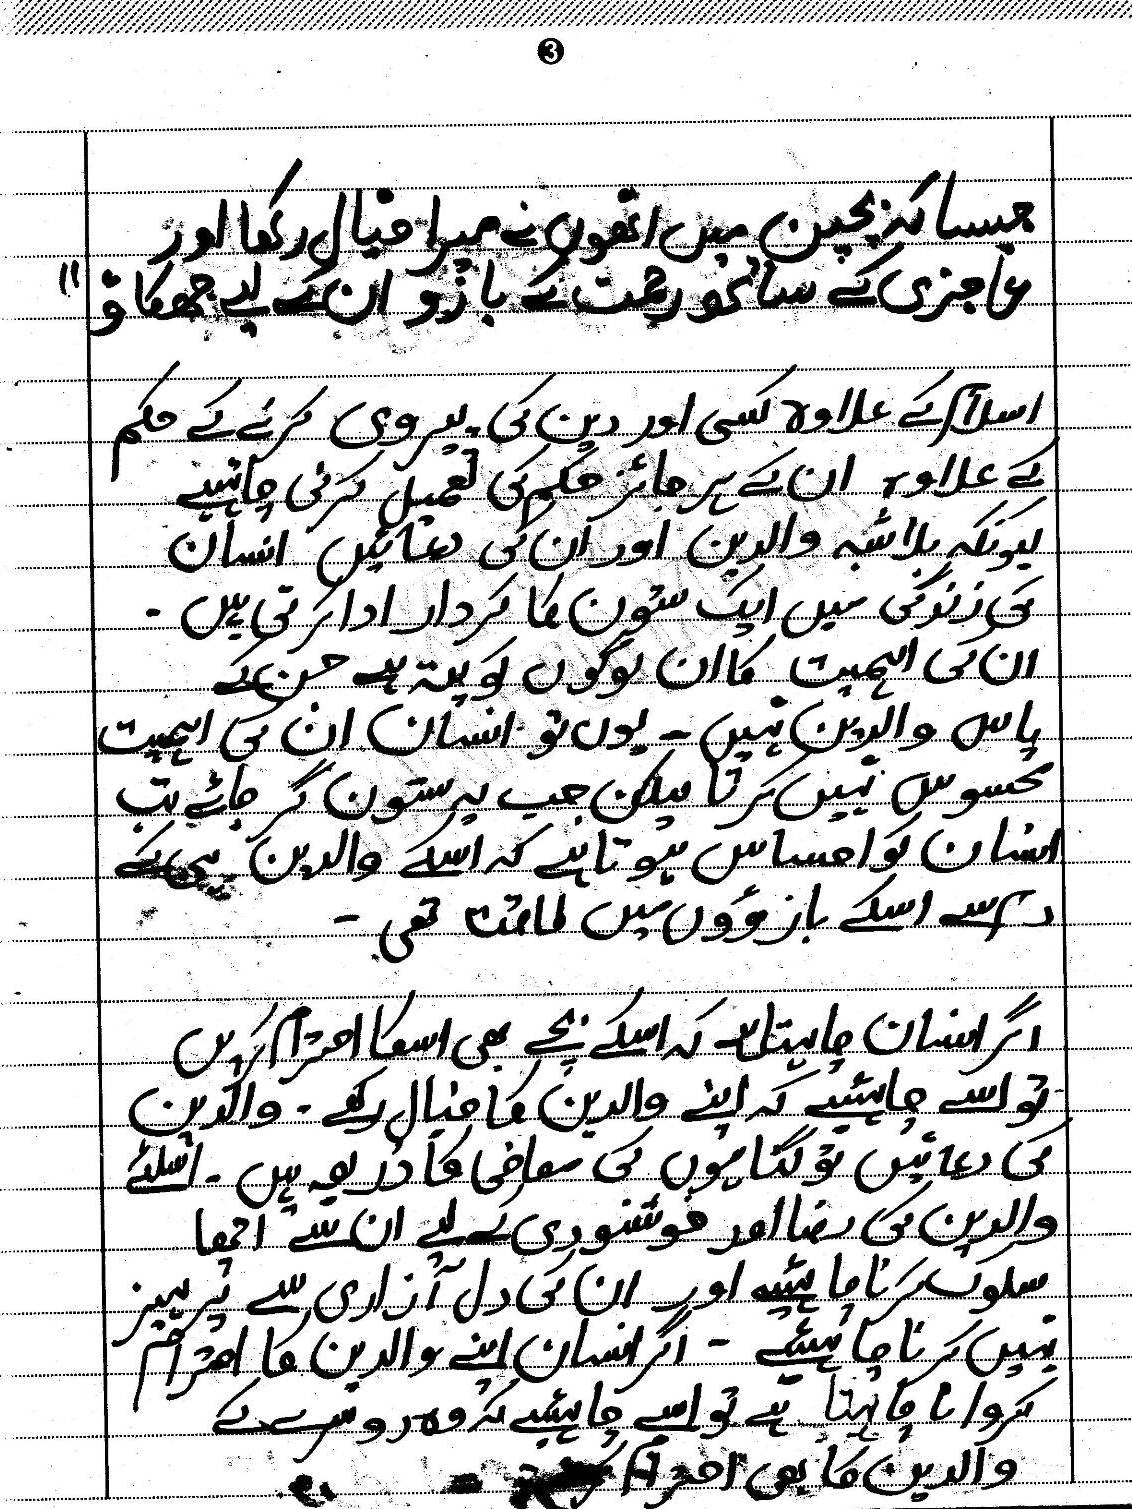 3
جیسا کہ بچپن میں انھوں نے میرا خیال رکھا اور
عاجزی کے ساتھ رحمت کے بازو ان کے لیے جھکاؤ "
اسلام کے علاوہ کسی اور دین کی پیروی کرنے کے حکم
کے علاوہ ان کے ہر جائز حکم کی تعمیل کرنی چاہئیے
کیونکہ بلاشبہ والدین اور ان کی دعائیں انسان
کی زندگی میں ایک ستون کا کردار ادا کرتی ہیں ۔
ان کی اہمیت کا ان لوگوں کو پتہ ہے جن کے
پاس والدین نہیں ۔ یوں تو انسان ان کی اہمیت
محسوس نہیں کرتا لیکن جب یہ ستون گر جائے تب
انسان کو احساس ہوتا ہے کہ اسکے والدین ہی کے
دم سے اسکے بازؤوں میں طاقت تھی ۔
اگر انسان چاہتا ہے کہ اسکے بچے بھی اسکا احترام کریں
تو اسے چاہئیے کہ اپنے والدین کا خیال رکھے ۔ والدین
کی دعائیں تو گناہوں کی معافی کا ذریعہ ہیں ۔ اسلئے
والدین کی رضا اور خوشنودی کے لیے ان سے اچھا
سلوک کرنا چاہئیے اور ان کی دل آزاری سے پرہیز
نہیں کرنا چاہئیے ۔ اگر انسان اپنے والدین کا احترام
کروانا چاہتا ہے تو اسے چاہئیے کہ وہ دوسرے کے
والدین کا بھی احترام